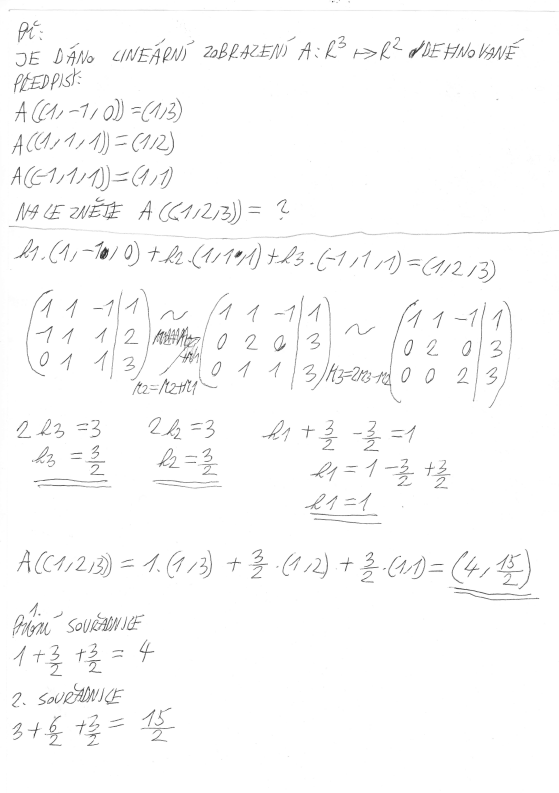 PŘ:
JE DÁNO LINEÁRNÍ ZOBRAZENÍ A: R³ ↦ R² DEFINOVANÉ
PŘEDPISY:
A((1,-1,0))=(1,3)
A((1,1,1))=(1,2)
A((-1,1,1))=(1,1)
NALEZNĚTE A((1,2,3)) = ?
k1.(1,-1,0)+k2.(1,1,1)+k3.(-1,1,1)=(1,2,3)
(1 1 -1 | 1) ~ (1 1 -1 | 1) ~ (1 1 -1 | 1)
(-1 1 1 | 2) (0 2 0 | 3) (0 2 0 | 3)
(0 1 1 | 3) (0 1 1 | 3) (0 0 2 | 3)
r2=r2+r1 r3=2r3-r2
2k3=3 2k2=3 k1 + 3/2 - 3/2 = 1
k3 = 3/2 k2 = 3/2 k1 = 1 - 3/2 + 3/2
k1 = 1
A((1,2,3)) = 1.(1,3) + 3/2.(1,2) + 3/2.(1,1) = (4, 15/2)
1.
SOUŘADNICE
1 + 3/2 + 3/2 = 4
2. SOUŘADNICE
3 + 6/2 + 3/2 = 15/2